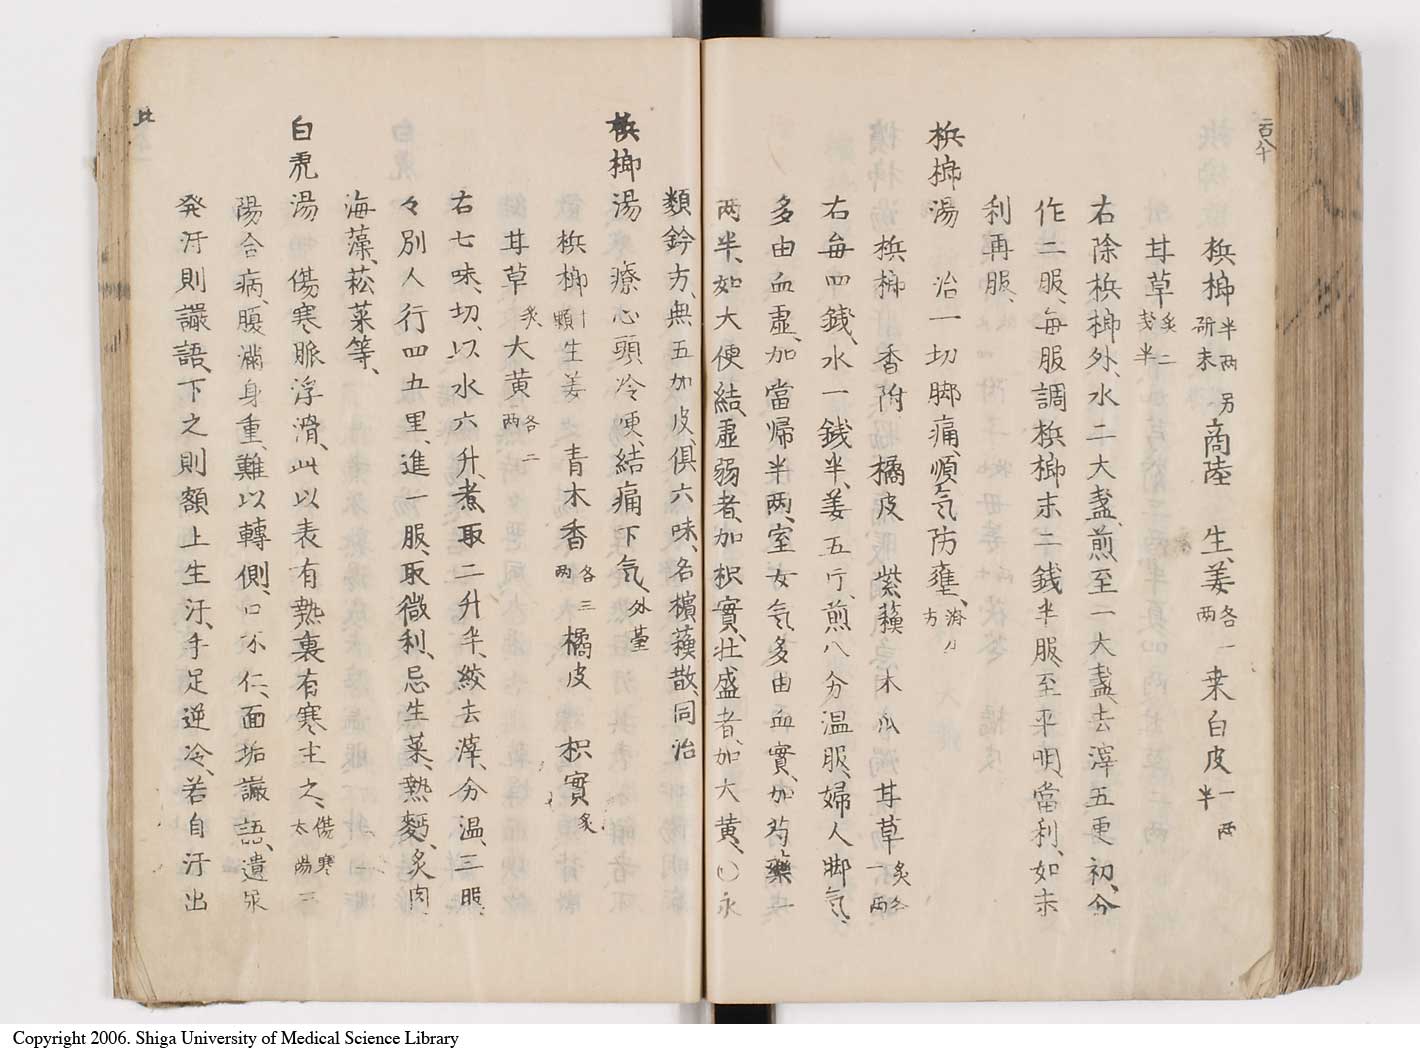 梹榔半両另研末 商陸 生姜各一両 桒白皮一両半
甘草炙二戔半
右除梹榔外、水二大盞、煎至一大盞、去滓、五更初、分
作二服、每服調梹榔末二銭半服、至平明、當利、如未
利再服、
梹榔湯 治一切脚痛、順气防壅、濟方
梹榔 香附 橘皮 紫蘓 木瓜 甘草炙各一両
右每四銭、水一銭半、姜五片、煎八分温服、婦人脚气、
多由血虚、加當帰半両、室女气多由血實、加芍藥一
両半、如大便結、虚弱者、加枳實、壮盛者、加大黄、〇永
類鈐方、無五加皮、俱六味、名檳蘓散、同治
梹榔湯 療心頭冷哽、結痛下气、外䑓
梹榔十顆 生姜 青木香各三両 橘皮 枳實炙
甘草炙 大黄各二両
右七味、切、以水六升、煮取二升半、絞去滓、分温、三服、
々別人行四五里、進一服、取微利、忌生菜、熱麪、炙肉、
海藻、菘菜等、
白虎湯 傷寒脈浮滑、此以表有熱裏有寒主之、傷寒太陽三
陽合病、腹満身重、難以轉側、口不仁、面垢讝語、遺尿
発汗則讝語、下之則額上生汗、手足逆冷、若自汗出
Copyright 2006. Shiga University of Medical Science Library